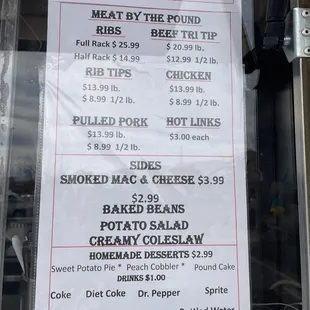 MEAT BY THE POUND
RIBS BEEF TRI TIP
Full Rack $ 25.99 $ 20.99 lb.
Half Rack $ 14.99 $12.99 1/2 lb.
RIB TIPS CHICKEN
$13.99 lb. $13.99 lb.
$ 8.99 1/2 lb. $ 8.99 1/2 lb.
PULLED PORK HOT LINKS
$13.99 lb. $3.00 each
$ 8.99 1/2 lb.
SIDES
SMOKED MAC & CHEESE $3.99
$2.99
BAKED BEANS
POTATO SALAD
CREAMY COLESLAW
HOMEMADE DESSERTS $2.99
Sweet Potato Pie * Peach Cobbler * Pound Cake
DRINKS $1.00
Coke Diet Coke Dr. Pepper Sprite
Bottled Water